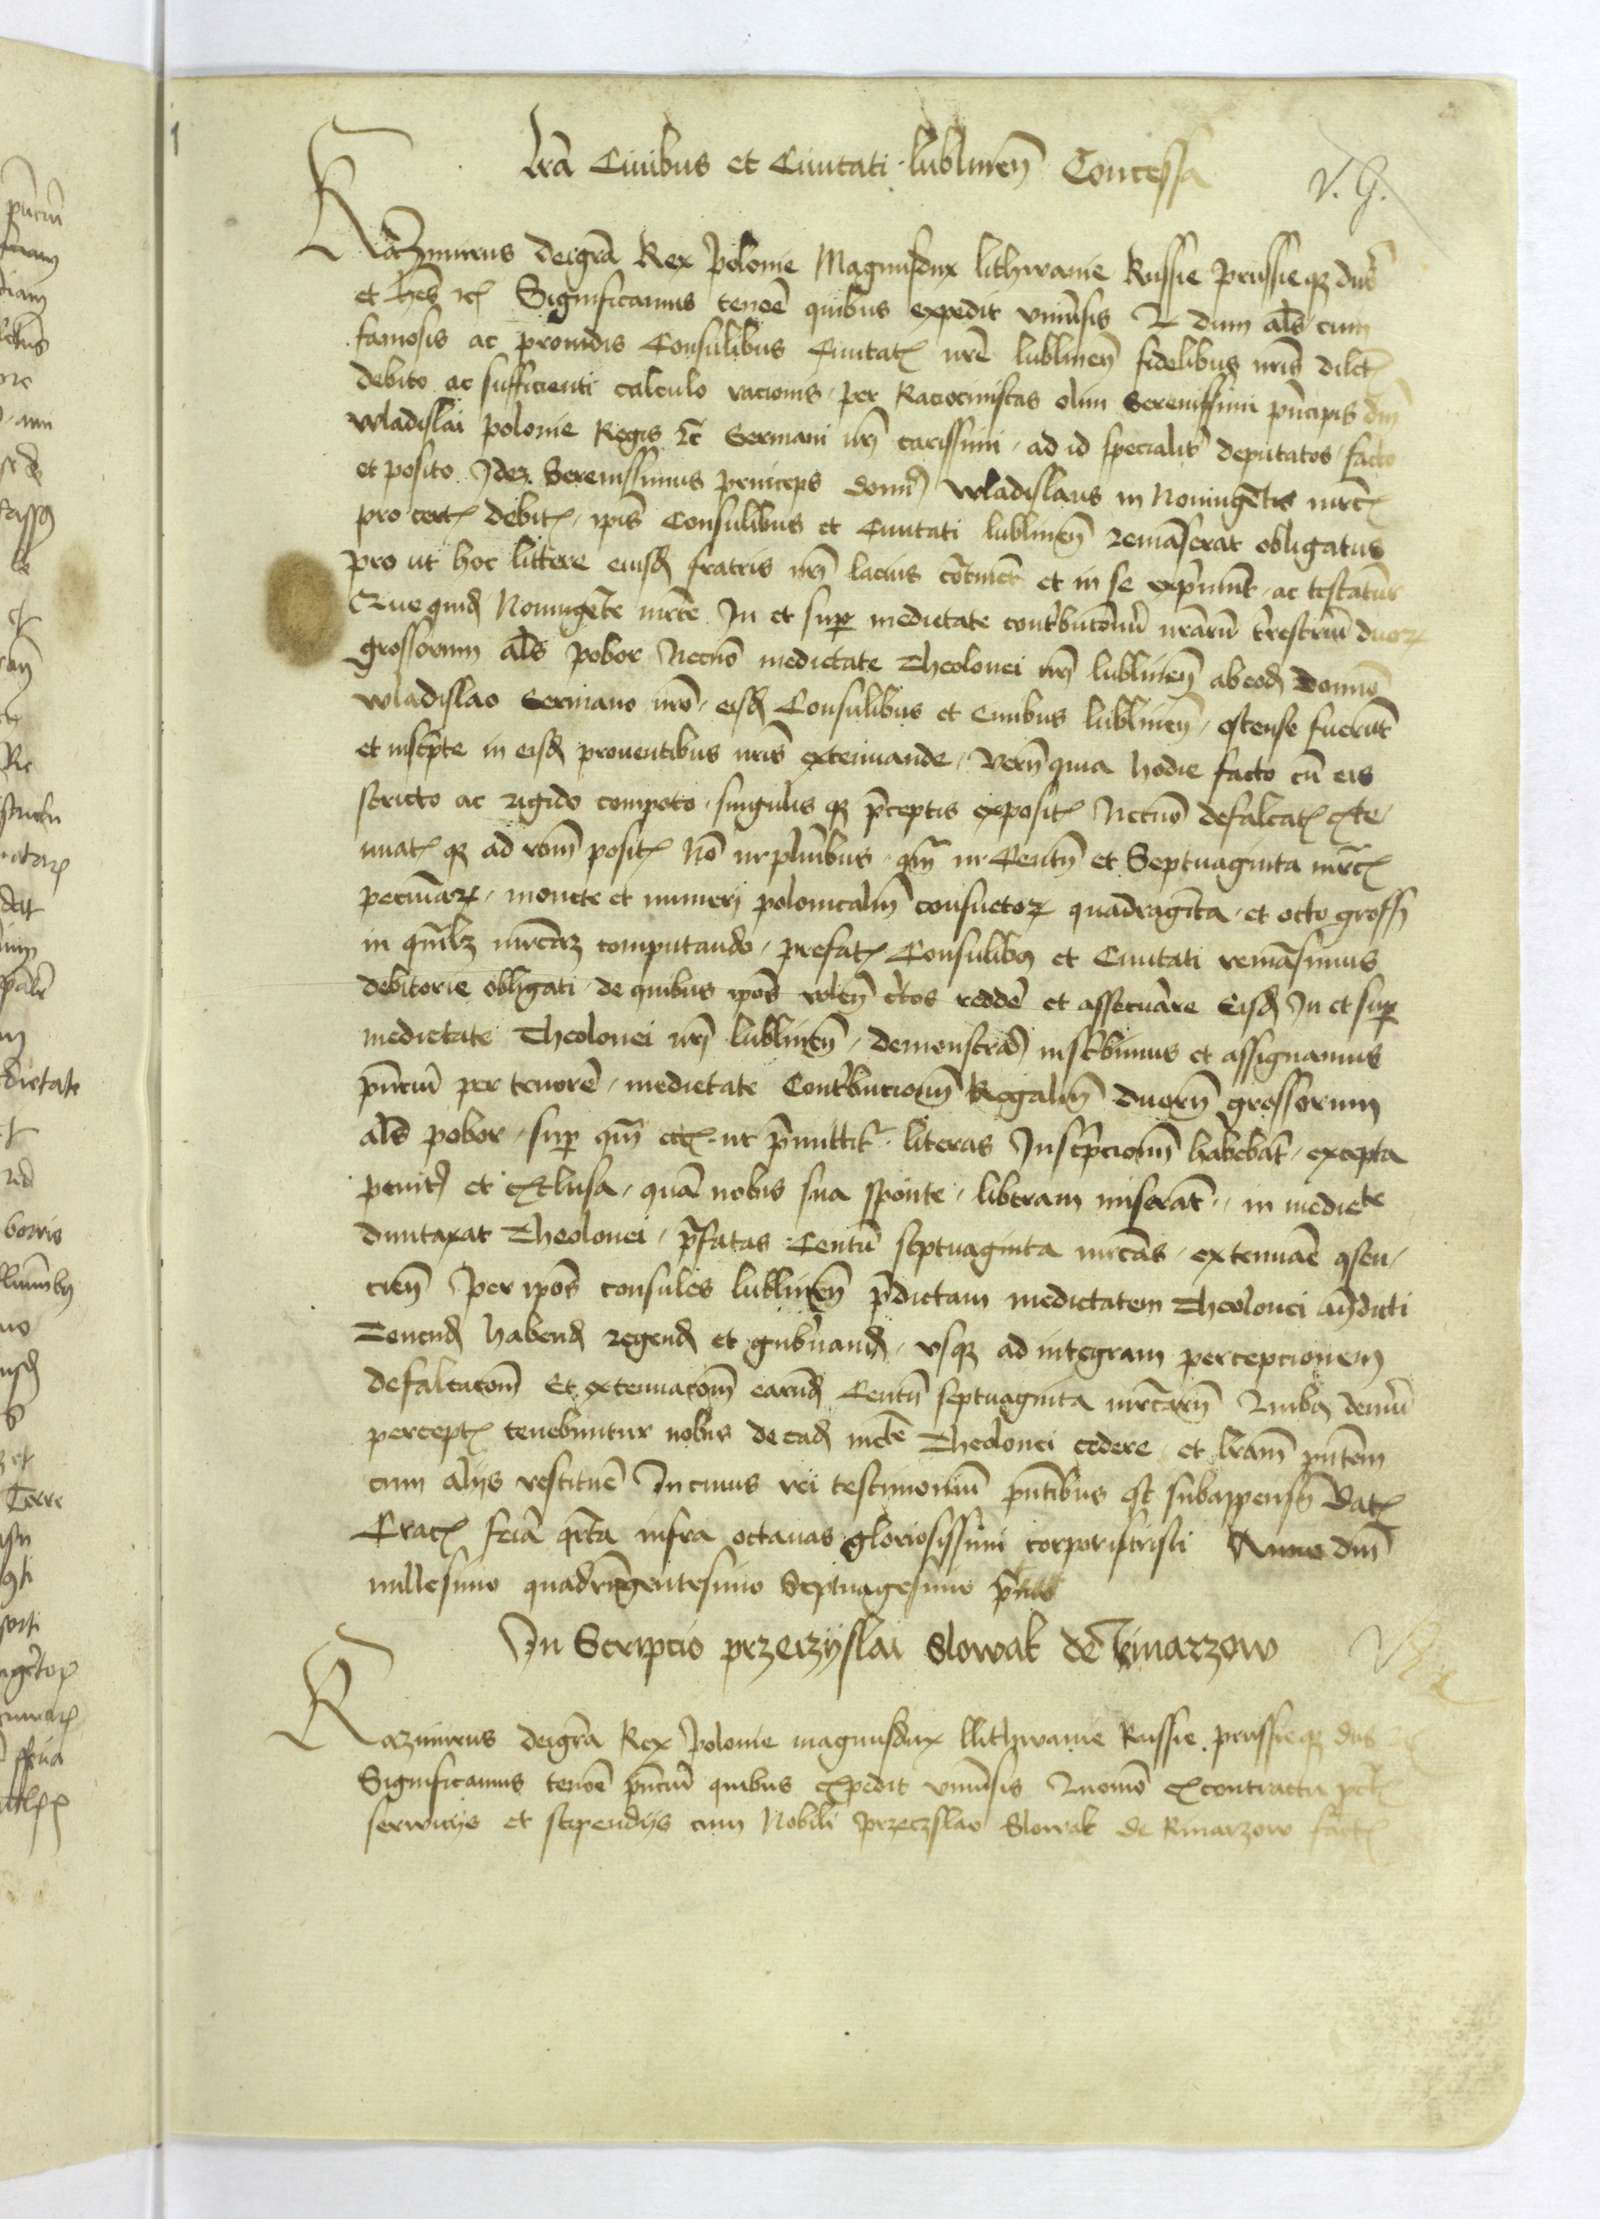 lrā Ciuibus et Ciuitati lublinēn Concessa
V. G.
Kazimirus deigrā Rex polonie Magnusdux lithwanie Russie prussieqʒ dns
et hes etc Significamus tenoē quibus expedit vniusis dum als cum
famosis ac prouidis Consulibus Ciuitatꝭ nrē lublinēn fidelibus nris dilctꝭ
debito ac sufficienti calculo racionis per Raciocinistas olim Serenissimi pncipis dni
wladislai polonie Regis etc Germani nri carissimi ad id specialit deputatos facto
et posito Idez Serenissimus princeps domin9 wladislaus in Noningētis mrcꝭ
pro certꝭ debitꝭ ipis Consulibus et Ciuitati lublinēn remāserat obligatus
pro ut hoc littere eiusd fratris nri lacius cōtinēt et in se exprimūt ac testātur
Que quid Noningēte mrce In et sup medietate contribucionū nrarū trestriū duorꝝ
grossorum als pobor Necnō medietate Theolonei nri lublinēn ab eod domio
wladislao Germano nro eisd Consulibus et Ciuibus lublinēn ostense fuerūt
et inscpte in eisd prouentibus nris extenuande verū quia hodie facto cū eis
stricto ac rigido compoto singulis qʒ pceptis expositꝭ Necnō defalcatꝭ exte
nuatꝭ qʒ ad rōm positꝭ Nō in plibus qm in Centū et Septuaginta mrcꝭ
pecuniarꝝ monete et numeri polonicalm consuetorꝝ quadragīta et octo gross
in qmlꝫ mrcarꝫ computando prefatꝭ Consulibꝯ et Ciuitati remāsimus
debitorie obligati de quibus ipos volen ctos redde et assecuare Eisd In et sup
medietate Theolonei nri lublinēn demonstrad inscbimus et assignamus
pnciū per tenorē medietate Contribucionū Regaliū duorū grossorum
als pobor sup qm ut pmittit literas Inscpcionū habebāt excepta
penit9 et exclusa quā nobis sua sponte liberam miserāt in mediete
dumtaxat Theolonei pfatas Centū septuaginta mrcas extenuaē
cien per ipos consules lublinēn pdictam medietatem Theolonei andicti
Tenend habend regend et gubnand vsqʒ ad integram percepcionem
defalcacom Et extenuacom earūd Centū septuaginta mrcarū Quibꝯ demū
perceptꝭ tenebuntur nobis de ead mcte Theolonei cedere et lram pntem
cum alijs restituē In cuius rei testimoniū pntibus est subappensū Datꝭ
Cracꝭ feiā qrta infra octauas gloriosissimi corporisxristi Anno dm
millesimo quadringentesimo Septuagesimo pmo
In Scripcio przeczyslai Slowak de Kmarzow
Kazimirus deigrā Rex Polonie magnusdux llithwanie Russie prussieqʒ dns
Significamus tenoē pnciū quibus expedit vniusis Quomō ex contractu
serwicijs et stipendijs cum Nobili Przeczslao Slowak de Kmarzow factꝭ